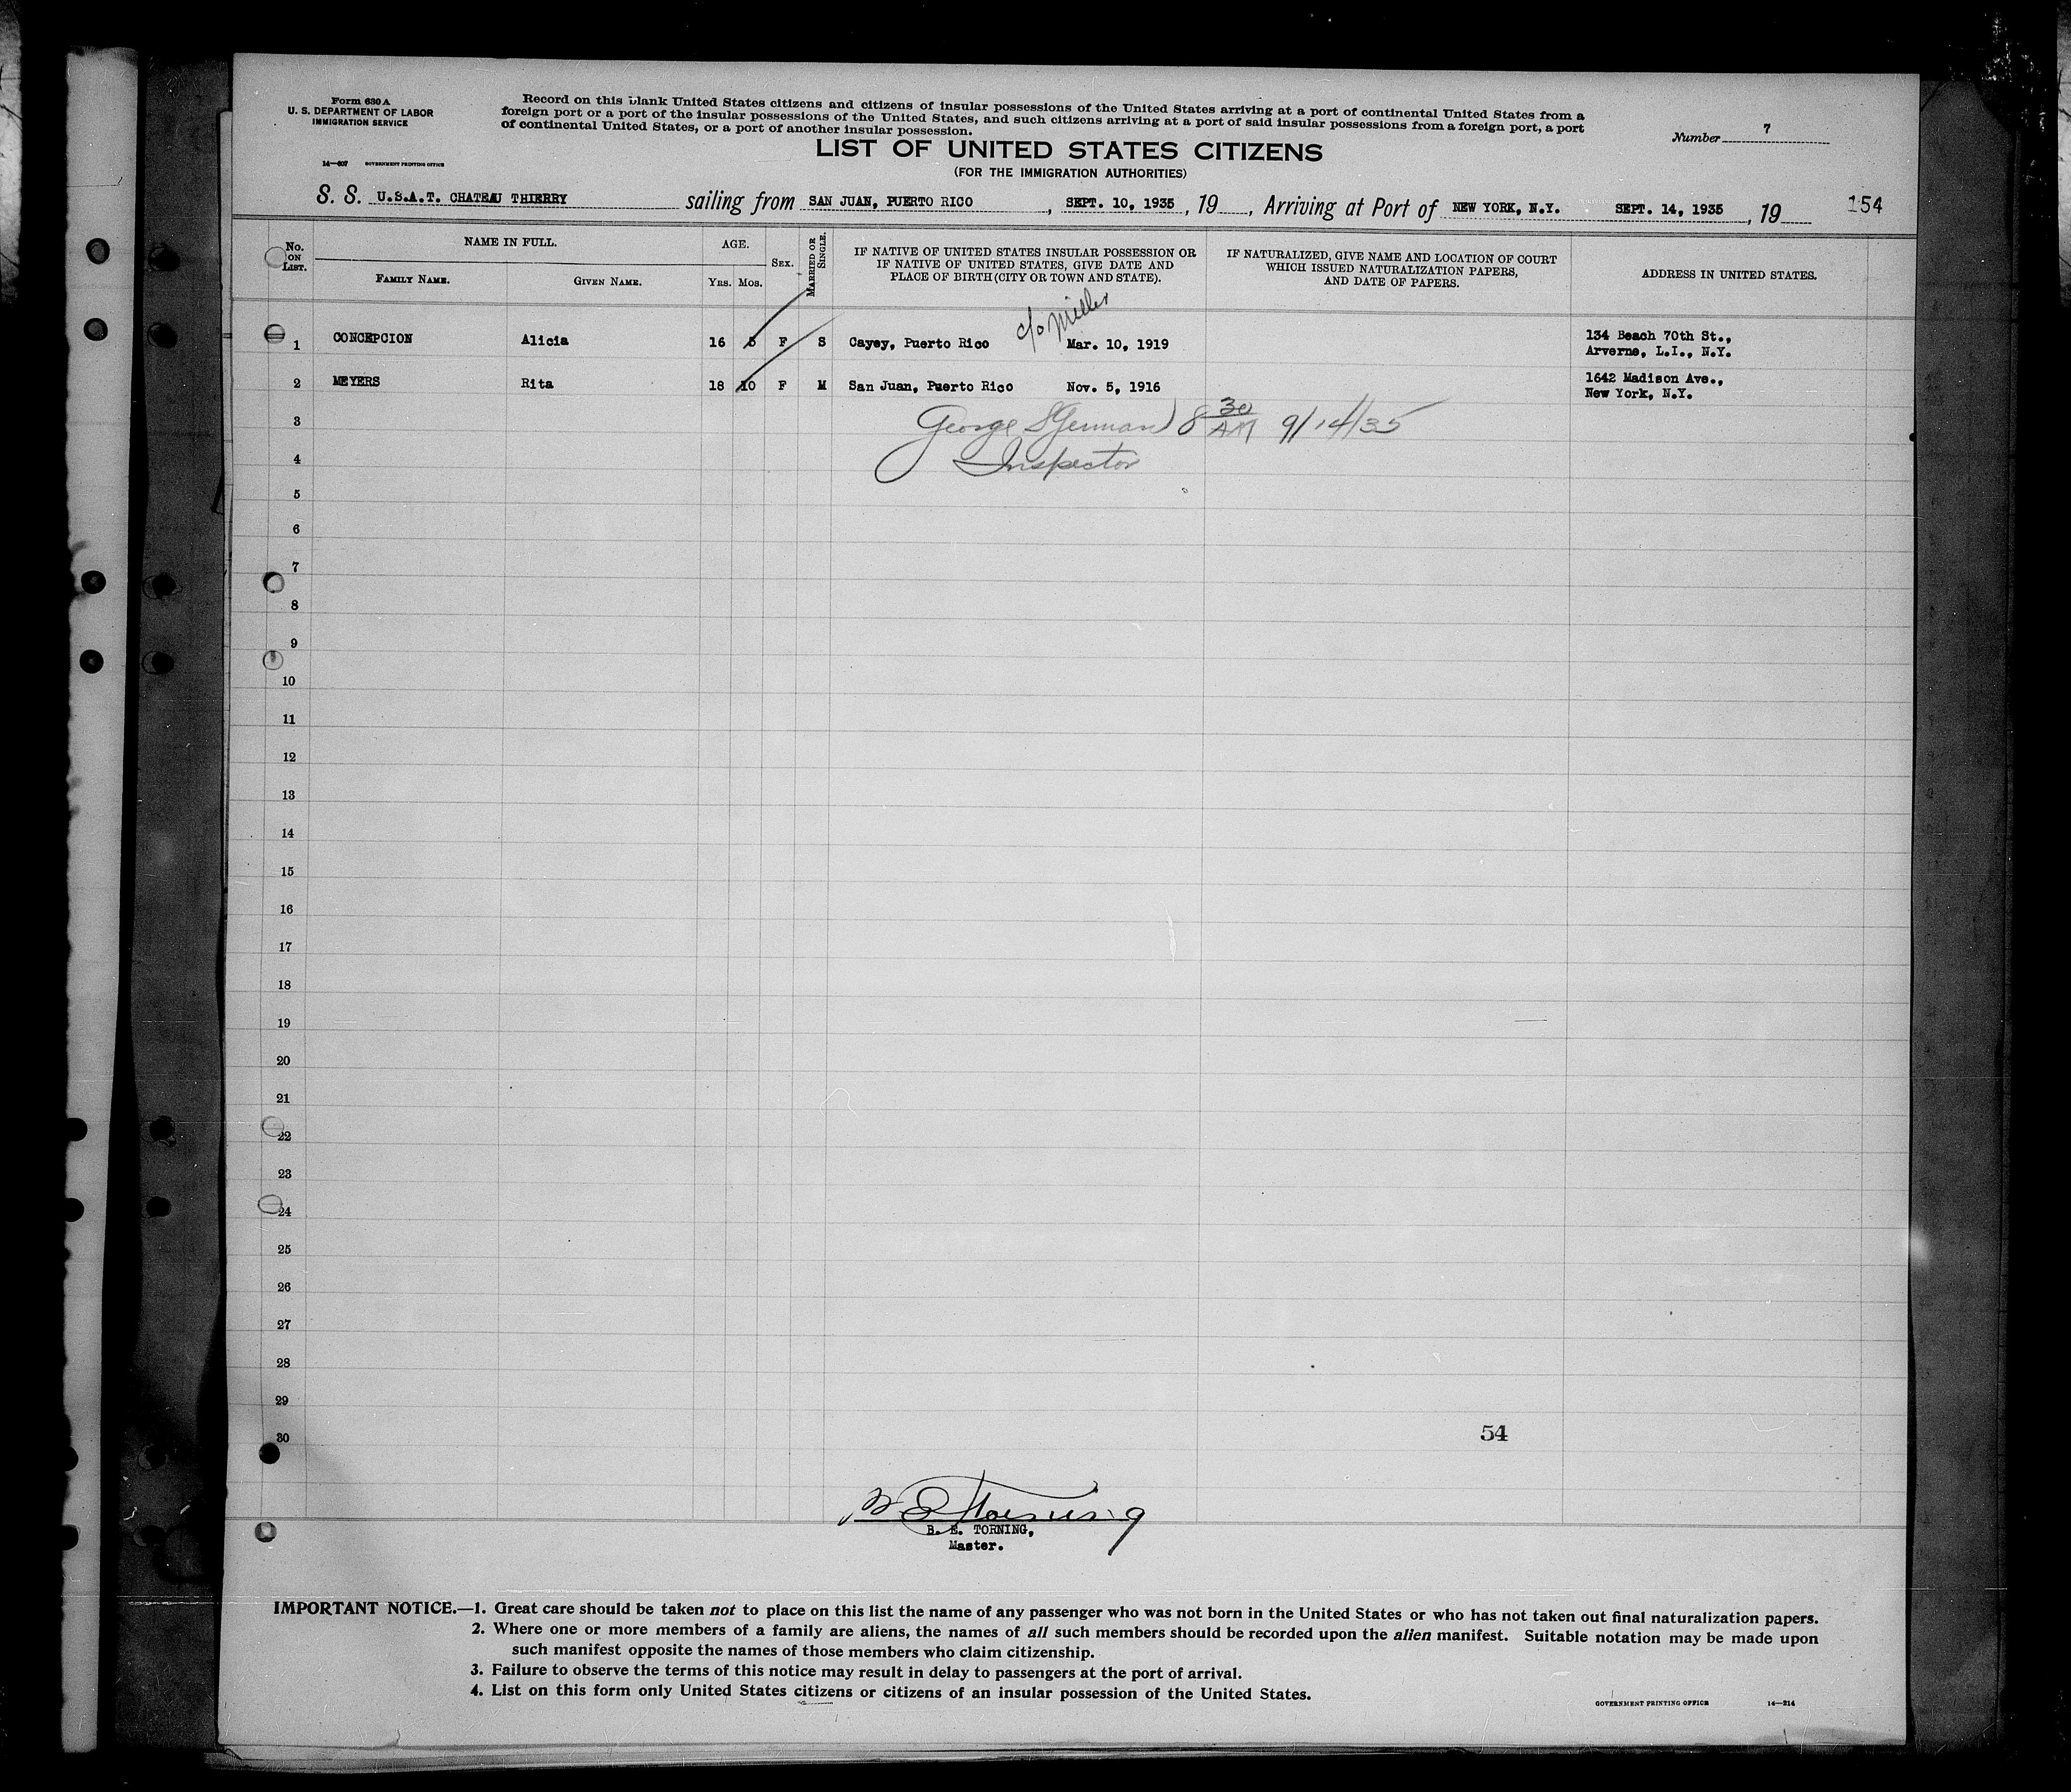 Form 630 A
U. S. DEPARTMENT OF LABOR
IMMIGRATION SERVICE
14—607 GOVERNMENT PRINTING OFFICE
Record on this blank United States citizens and citizens of insular possessions of the United States arriving at a port of continental United States from a
foreign port or a port of the insular possessions of the United States, and such citizens arriving at a port of said insular possessions from a foreign port, a port
of continental United States, or a port of another insular possession.
Number 7
LIST OF UNITED STATES CITIZENS
(FOR THE IMMIGRATION AUTHORITIES)
S. S. U.S.A.T. CHATEAU THIERRY sailing from SAN JUAN, PUERTO RICO, SEPT. 10, 1935, 19, Arriving at Port of NEW YORK, N.Y. SEPT. 14, 1935, 19 154
No. ON LIST. NAME IN FULL. AGE. SEX. MARRIED OR SINGLE. IF NATIVE OF UNITED STATES INSULAR POSSESSION OR IF NATIVE OF UNITED STATES, GIVE DATE AND PLACE OF BIRTH (CITY OR TOWN AND STATE). IF NATURALIZED, GIVE NAME AND LOCATION OF COURT WHICH ISSUED NATURALIZATION PAPERS, AND DATE OF PAPERS. ADDRESS IN UNITED STATES.
FAMILY NAME. GIVEN NAME. YRS. MOS.
c/o Miller
1 CONCEPCION Alicia 16 F S Cayey, Puerto Rico Mar. 10, 1919 134 Beach 70th St.,
Arverne, L.I., N.Y.
2 MEYERS Rita 18 10 F M San Juan, Puerto Rico Nov. 5, 1916 1642 Madison Ave.,
New York, N.Y.
3 George 8 30 AM 9/14/35
4 Inspector
5
6
7
8
9
10
11
12
13
14
15
16
17
18
19
20
21
22
23
24
25
26
27
28
29
30 54
B. E. TORNING,
Master.
IMPORTANT NOTICE.—1. Great care should be taken not to place on this list the name of any passenger who was not born in the United States or who has not taken out final naturalization papers.
2. Where one or more members of a family are aliens, the names of all such members should be recorded upon the alien manifest. Suitable notation may be made upon
such manifest opposite the names of those members who claim citizenship.
3. Failure to observe the terms of this notice may result in delay to passengers at the port of arrival.
4. List on this form only United States citizens or citizens of an insular possession of the United States.
GOVERNMENT PRINTING OFFICE 14—214